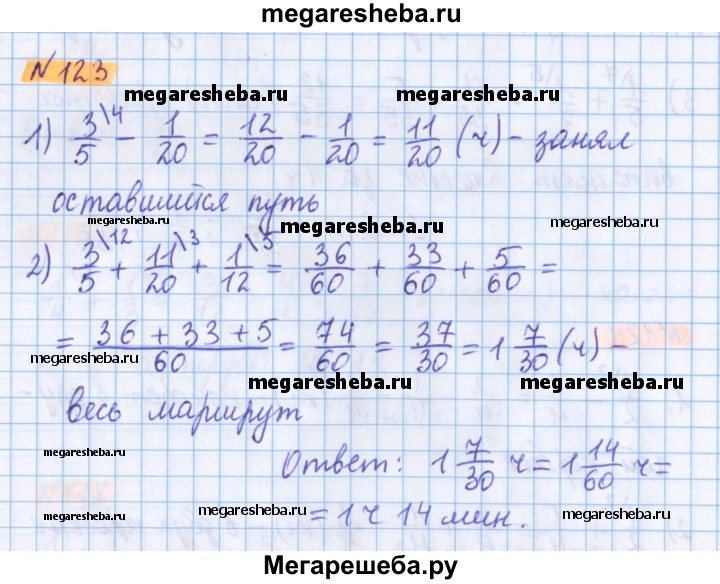 megaresheba.ru
№ 123
megaresheba.ru megaresheba.ru
1) 3/5 \4 − 1/20 = 12/20 − 1/20 = 11/20 (ч) - занял
оставшийся путь
megaresheba.ru megaresheba.ru megaresheba.ru
2) 3/5 \12 + 11/20 \3 + 1/12 \5 = 36/60 + 33/60 + 5/60 =
= 36 + 33 + 5/60 = 74/60 = 37/30 = 1 7/30 (ч) -
megaresheba.ru megaresheba.ru megaresheba.ru
весь маршрут
Ответ: 1 7/30 ч = 1 14/60 ч =
= 1 ч 14 мин.
megaresheba.ru megaresheba.ru megaresheba.ru
Мегарешеба.ру